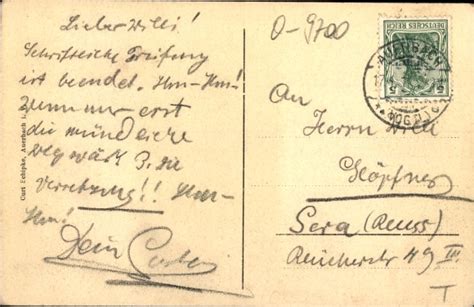 Lieber Willi!
Schriftliche Prüfung
ist beendet. Hm-Hm!
Wenn nur erst
die mündliche
weg wär! B. die
Versetzung!! Hm-
Hm!
Dein
Curt Schipke, Auerbach i.
0-9700
DEUTSCHES REICH
5
5
AUERBACH
An
Herrn Willi
Höpfner
Gera (Reuss)
49 III.
T